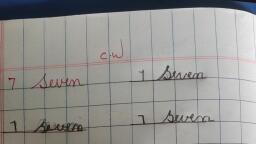 C.W
7 Seven 7 Seven
7 Seven 7 Seven